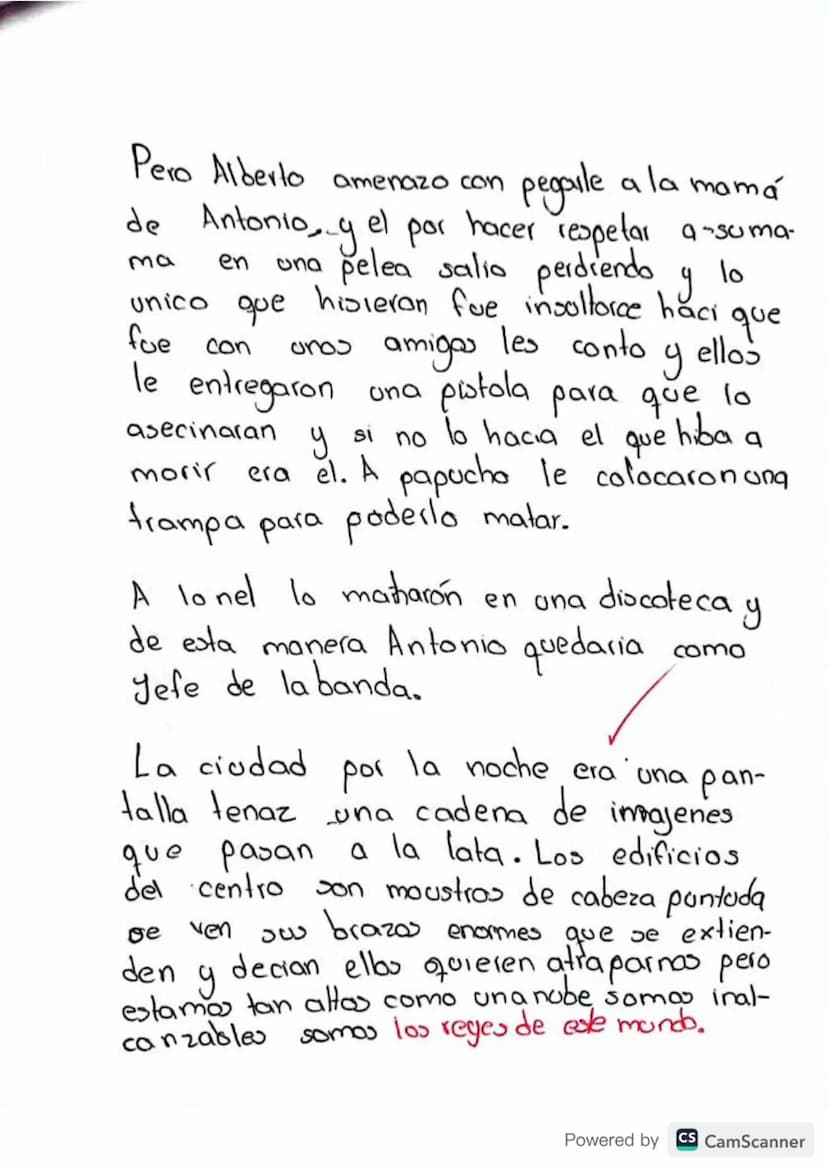 Pero Alberto amenazo con pegarle a la mamá
de Antonio, y el por hacer respetar a su ma-
ma en una pelea salio perdiendo y lo
unico que hisieron fue insultarce haci que
fue con unos amigos les conto y ellos
le entregaron una pistola para que lo
asecinaran y si no lo hacia el que hiba a
morir era él. A papucho le colocaron una
trampa para poderlo matar.
A lonel lo matarón en una discoteca y
de esta manera Antonio quedaria como
Jefe de la banda.
La ciudad por la noche era una pan-
talla tenaz una cadena de imagenes
que pasan a la lata. Los edificios
del centro son moustros de cabeza puntuda
se ven sus brazos enormes que se extien-
den y decian ellos quieren atraparnos pero
estamos tan altos como una nube somos inal-
canzables somos los reyes de este mundo.
Powered by CS CamScanner